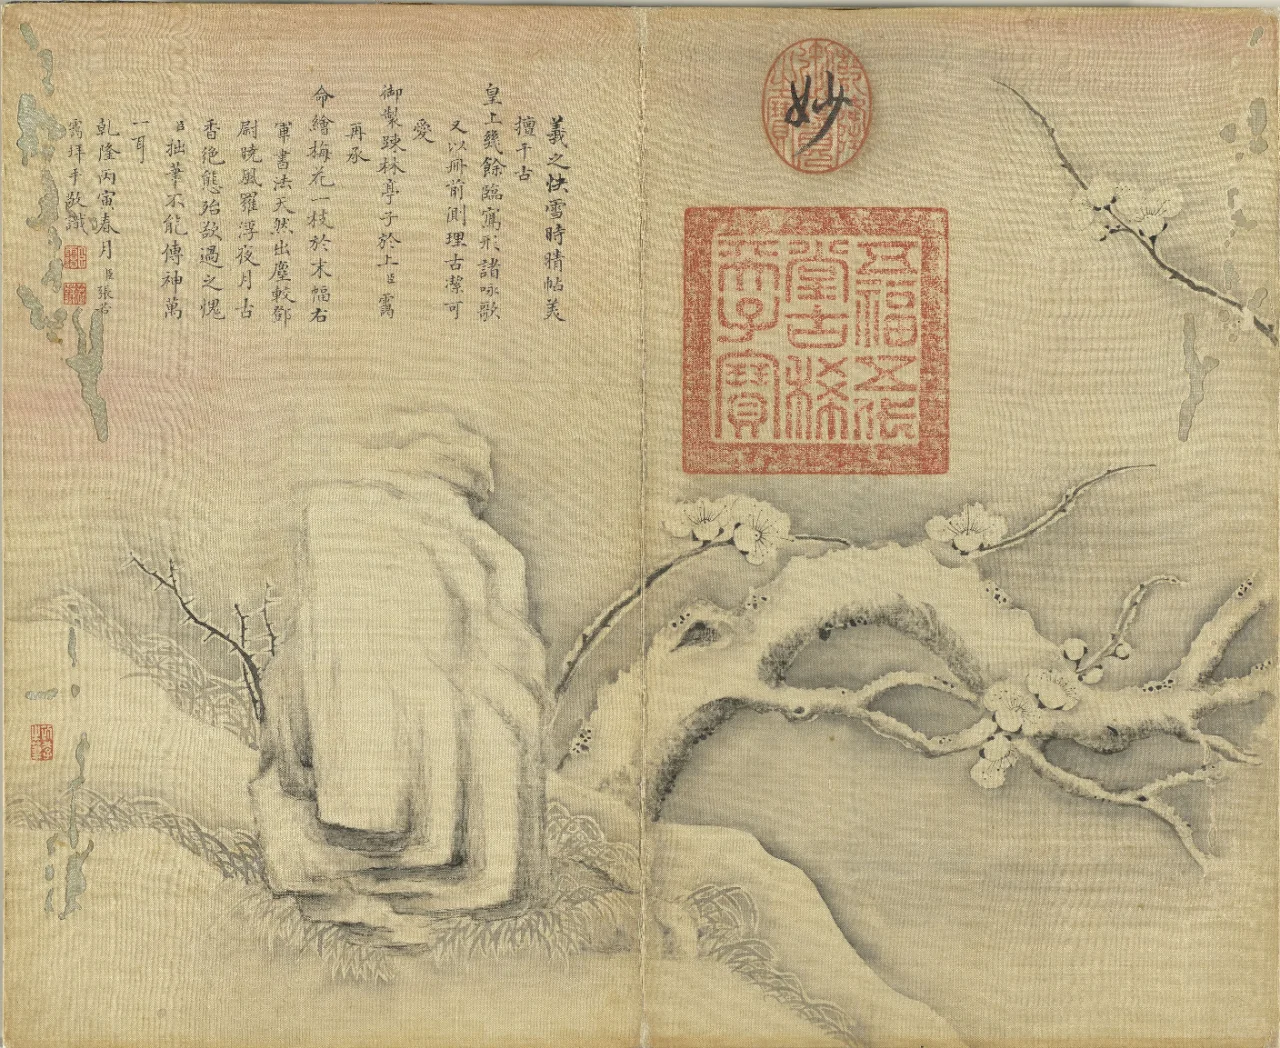 妙
乾隆御覽之寶
五福五代
堂古稀
天子寶
羲之快雪時晴帖美
擅千古
皇上幾餘臨寫形諸咏歌
又以冊前側理古潔可
愛
御製疎林亭子於上臣靄
再承
命繪梅花一枝於末幅右
軍書法天然出塵較鄧
尉曉風羅浮夜月古
香絕態殆欲過之愧
臣拙筆不能傳神萬
一耳
乾隆丙寅春月臣張若
靄拜手敬識